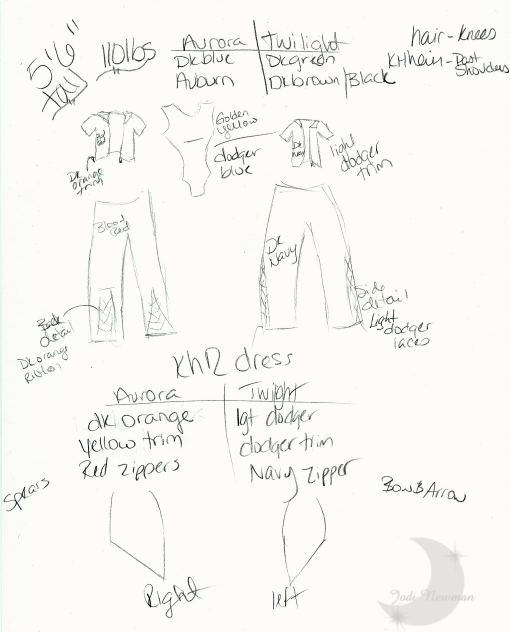 5'6"
tall
110lbs
Aurora
Twilight
DK blue
DK green
Auburn
DK brown/Black
hair - Knees
KH hair - Past
Shoulders
Golden
yellow
dodger
blue
DK
orange
trim
Dk
Navy
light
dodger
trim
Blood
Red
Dk
Navy
detail
Dk orange
Ribbon
Side
detail
Light
dodger
laces
Kh2 dress
Aurora
Twilight
dk orange
lgt dodger
yellow trim
dodger trim
Red zippers
Navy zipper
Spears
Bow & Arrow
Right
left
Jodi Newman